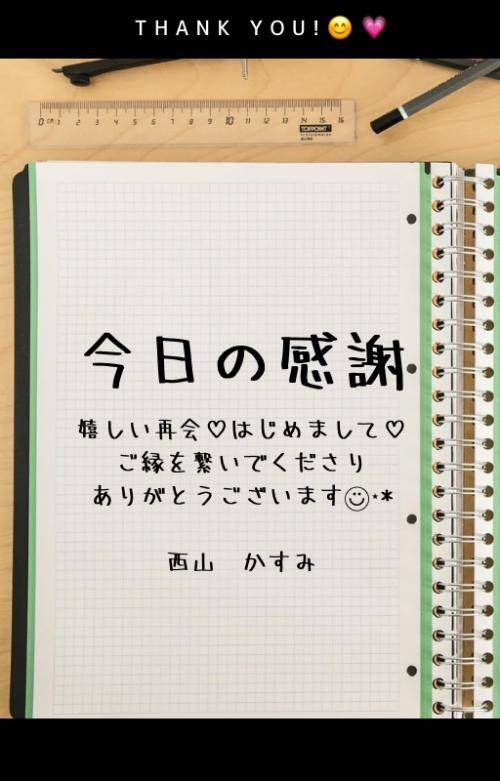 THANK YOU!😊💗
0 CM 1 2 3 4 5 6 7 8 9 10 11 12 13 14 15 16
TOPPOINT
今日の感謝
嬉しい再会♡はじめまして♡
ご縁を繋いでくださり
ありがとうございます☺︎⋆*
西山　かすみ